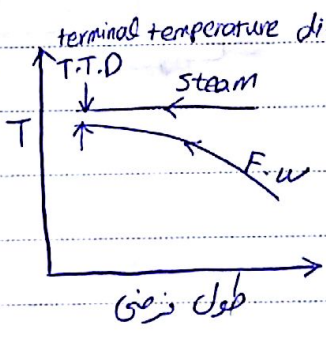 terminal temperature di
T.T.D
steam
T
F.w
طول فرضی